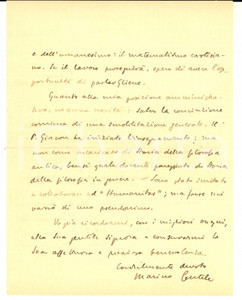 e dell'umanesimo: il matematismo cartesia-
no. Se il lavoro proseguirà, spero di avere l'op-
portunità di parlargliene.
Quanto alla mia posizione amministra-
tiva, nessuna novità: salvo la conciliazione
di una mobilitazione generale. Il
P. Giacon ha iniziato l'insegnamento; ma
non come incaricato di Storia della filosofia
antica, bensì quale docente pareggiato di Storia
della filosofia in genere. Sono stato invitato
a collaborare ad "Humanitas"; ma forse mi
varrò di uno pseudonimo.
Voglia ricordarmi, con i migliori ossequi,
alla Sua gentile Signora e conservarmi la
Sua affettuosa e preziosa benevolenza.
Cordialmente devoto
Marino Gentile